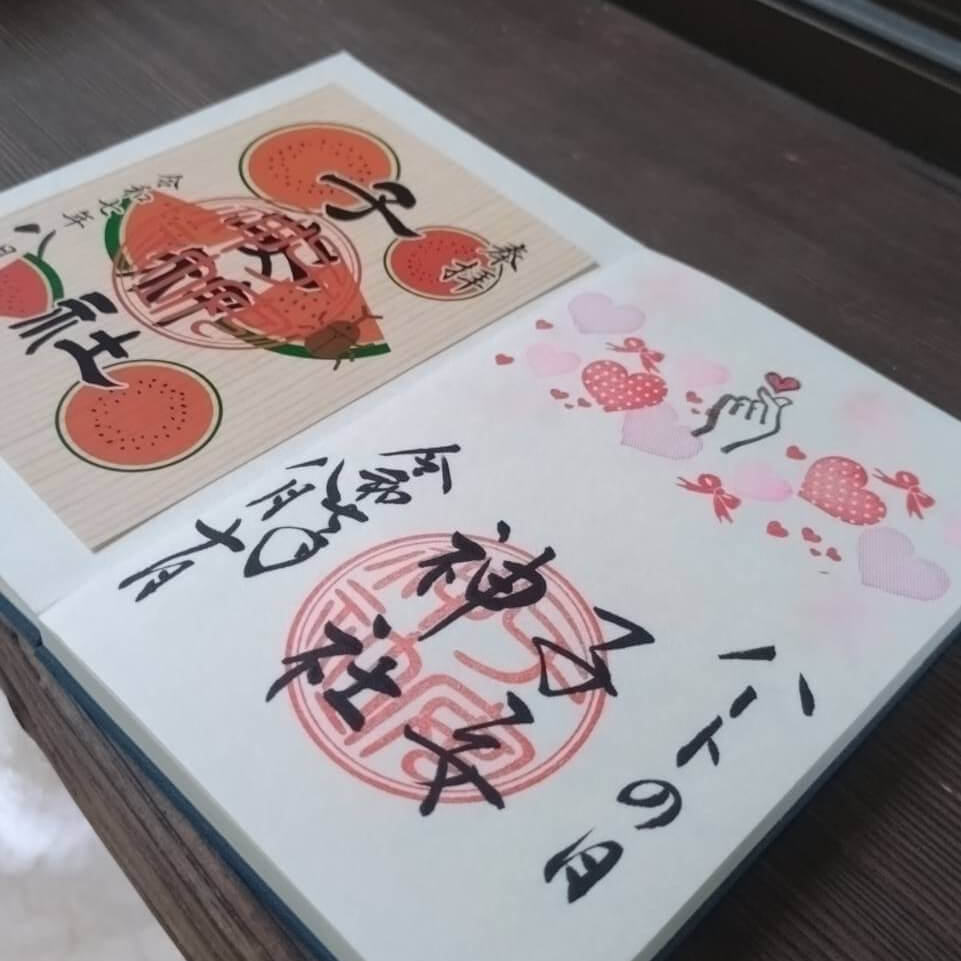 奉拝
子安
神社
令和七年
八
ハートの日
子安
神社
令和七年
八月十日